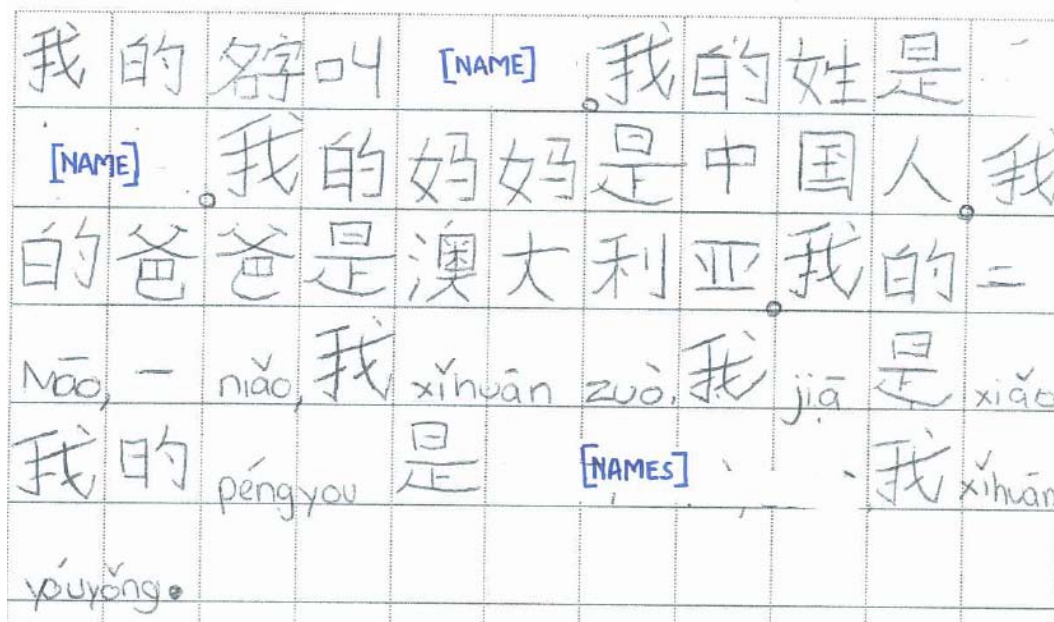 我的名字叫 [NAME] 。我的姓是
[NAME] 。我的妈妈是中国人。我
的爸爸是澳大利亚。我的二
Māo, 一 niǎo, 我 xǐhuān zuò. 我 jiā 是 xiǎo
我的 péngyou 是 [NAMES] 、 、 我 xǐhuān
yóuyǒng。